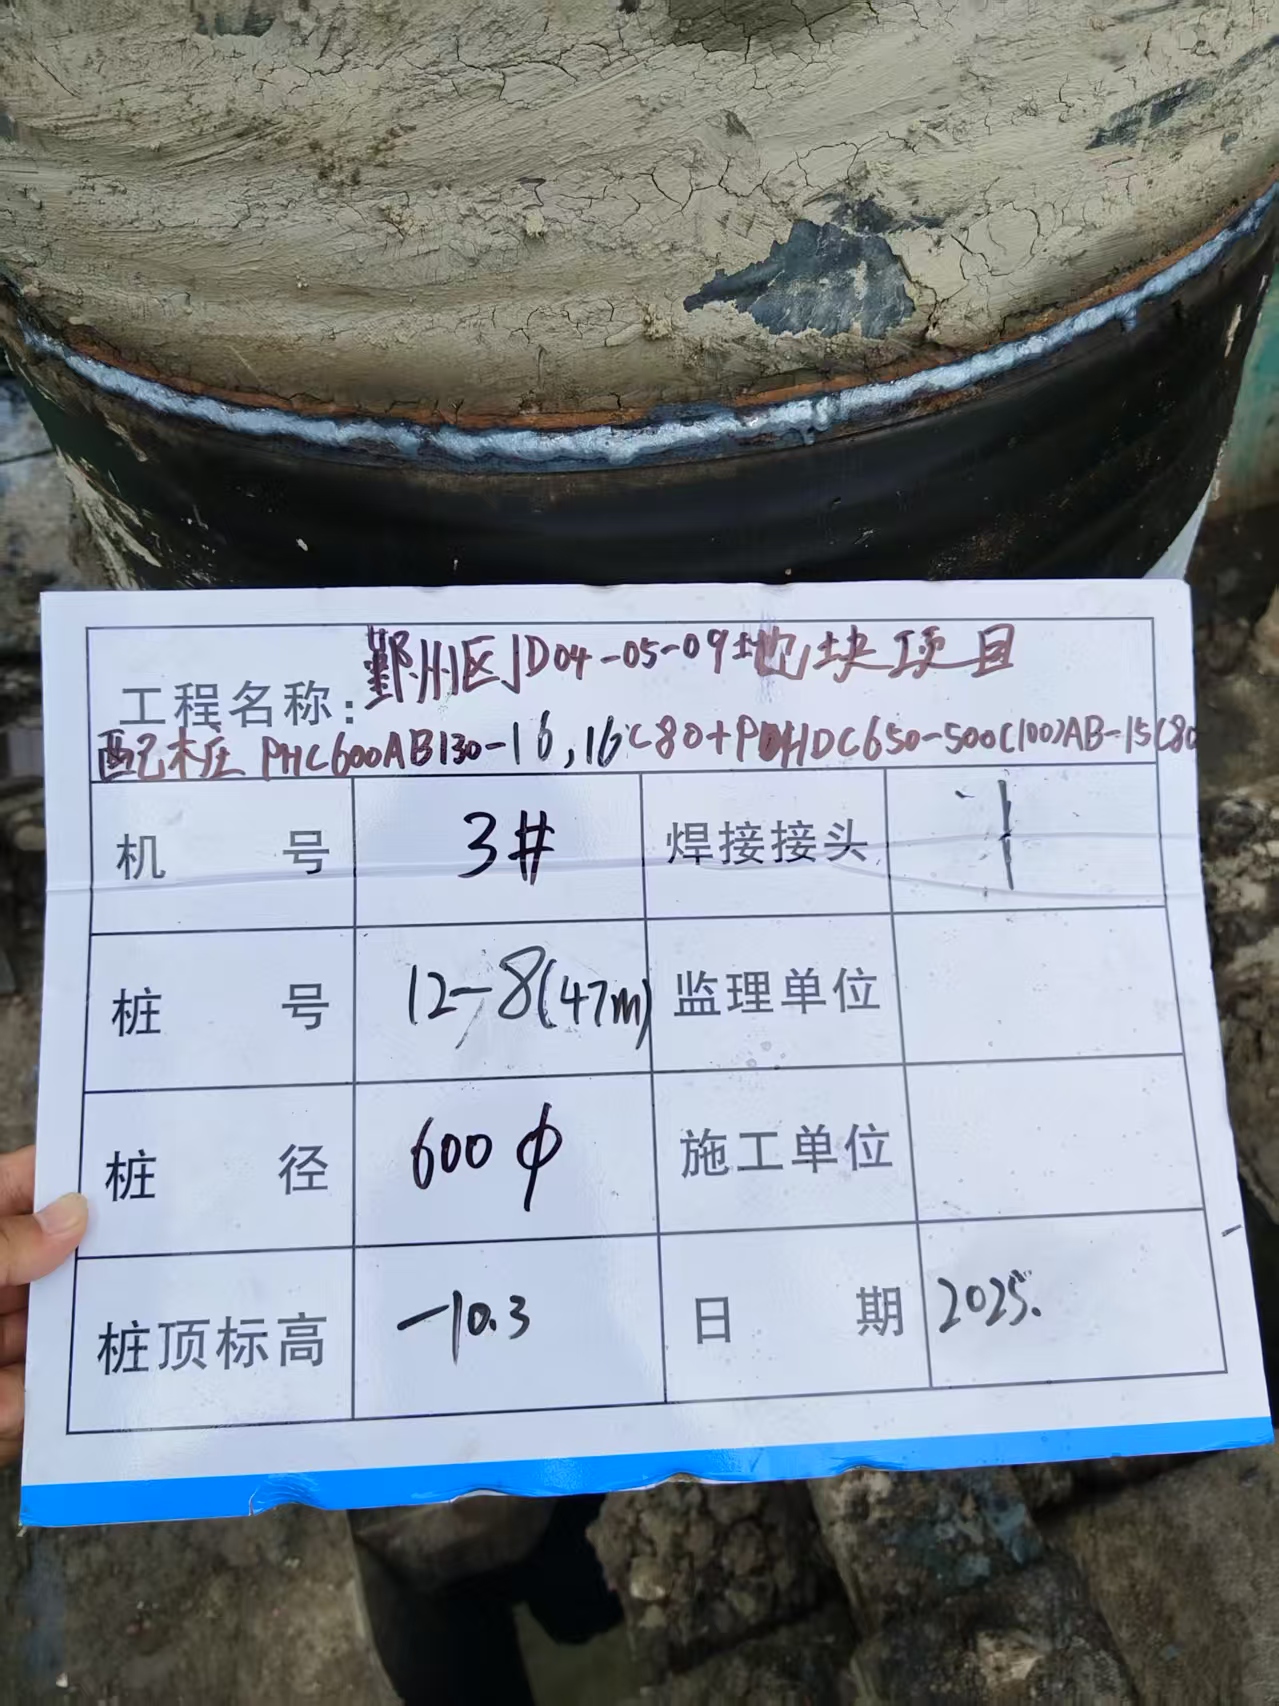 鄞州区JD04-05-09地块项目
工程名称:
配桩 PHC600AB130-16,16C80+PHDC650-500(100)AB-15C80
机 号 3# 焊接接头 1
桩 号 12-8(47m) 监理单位
桩 径 600φ 施工单位
桩顶标高 -10.3 日 期 2025.